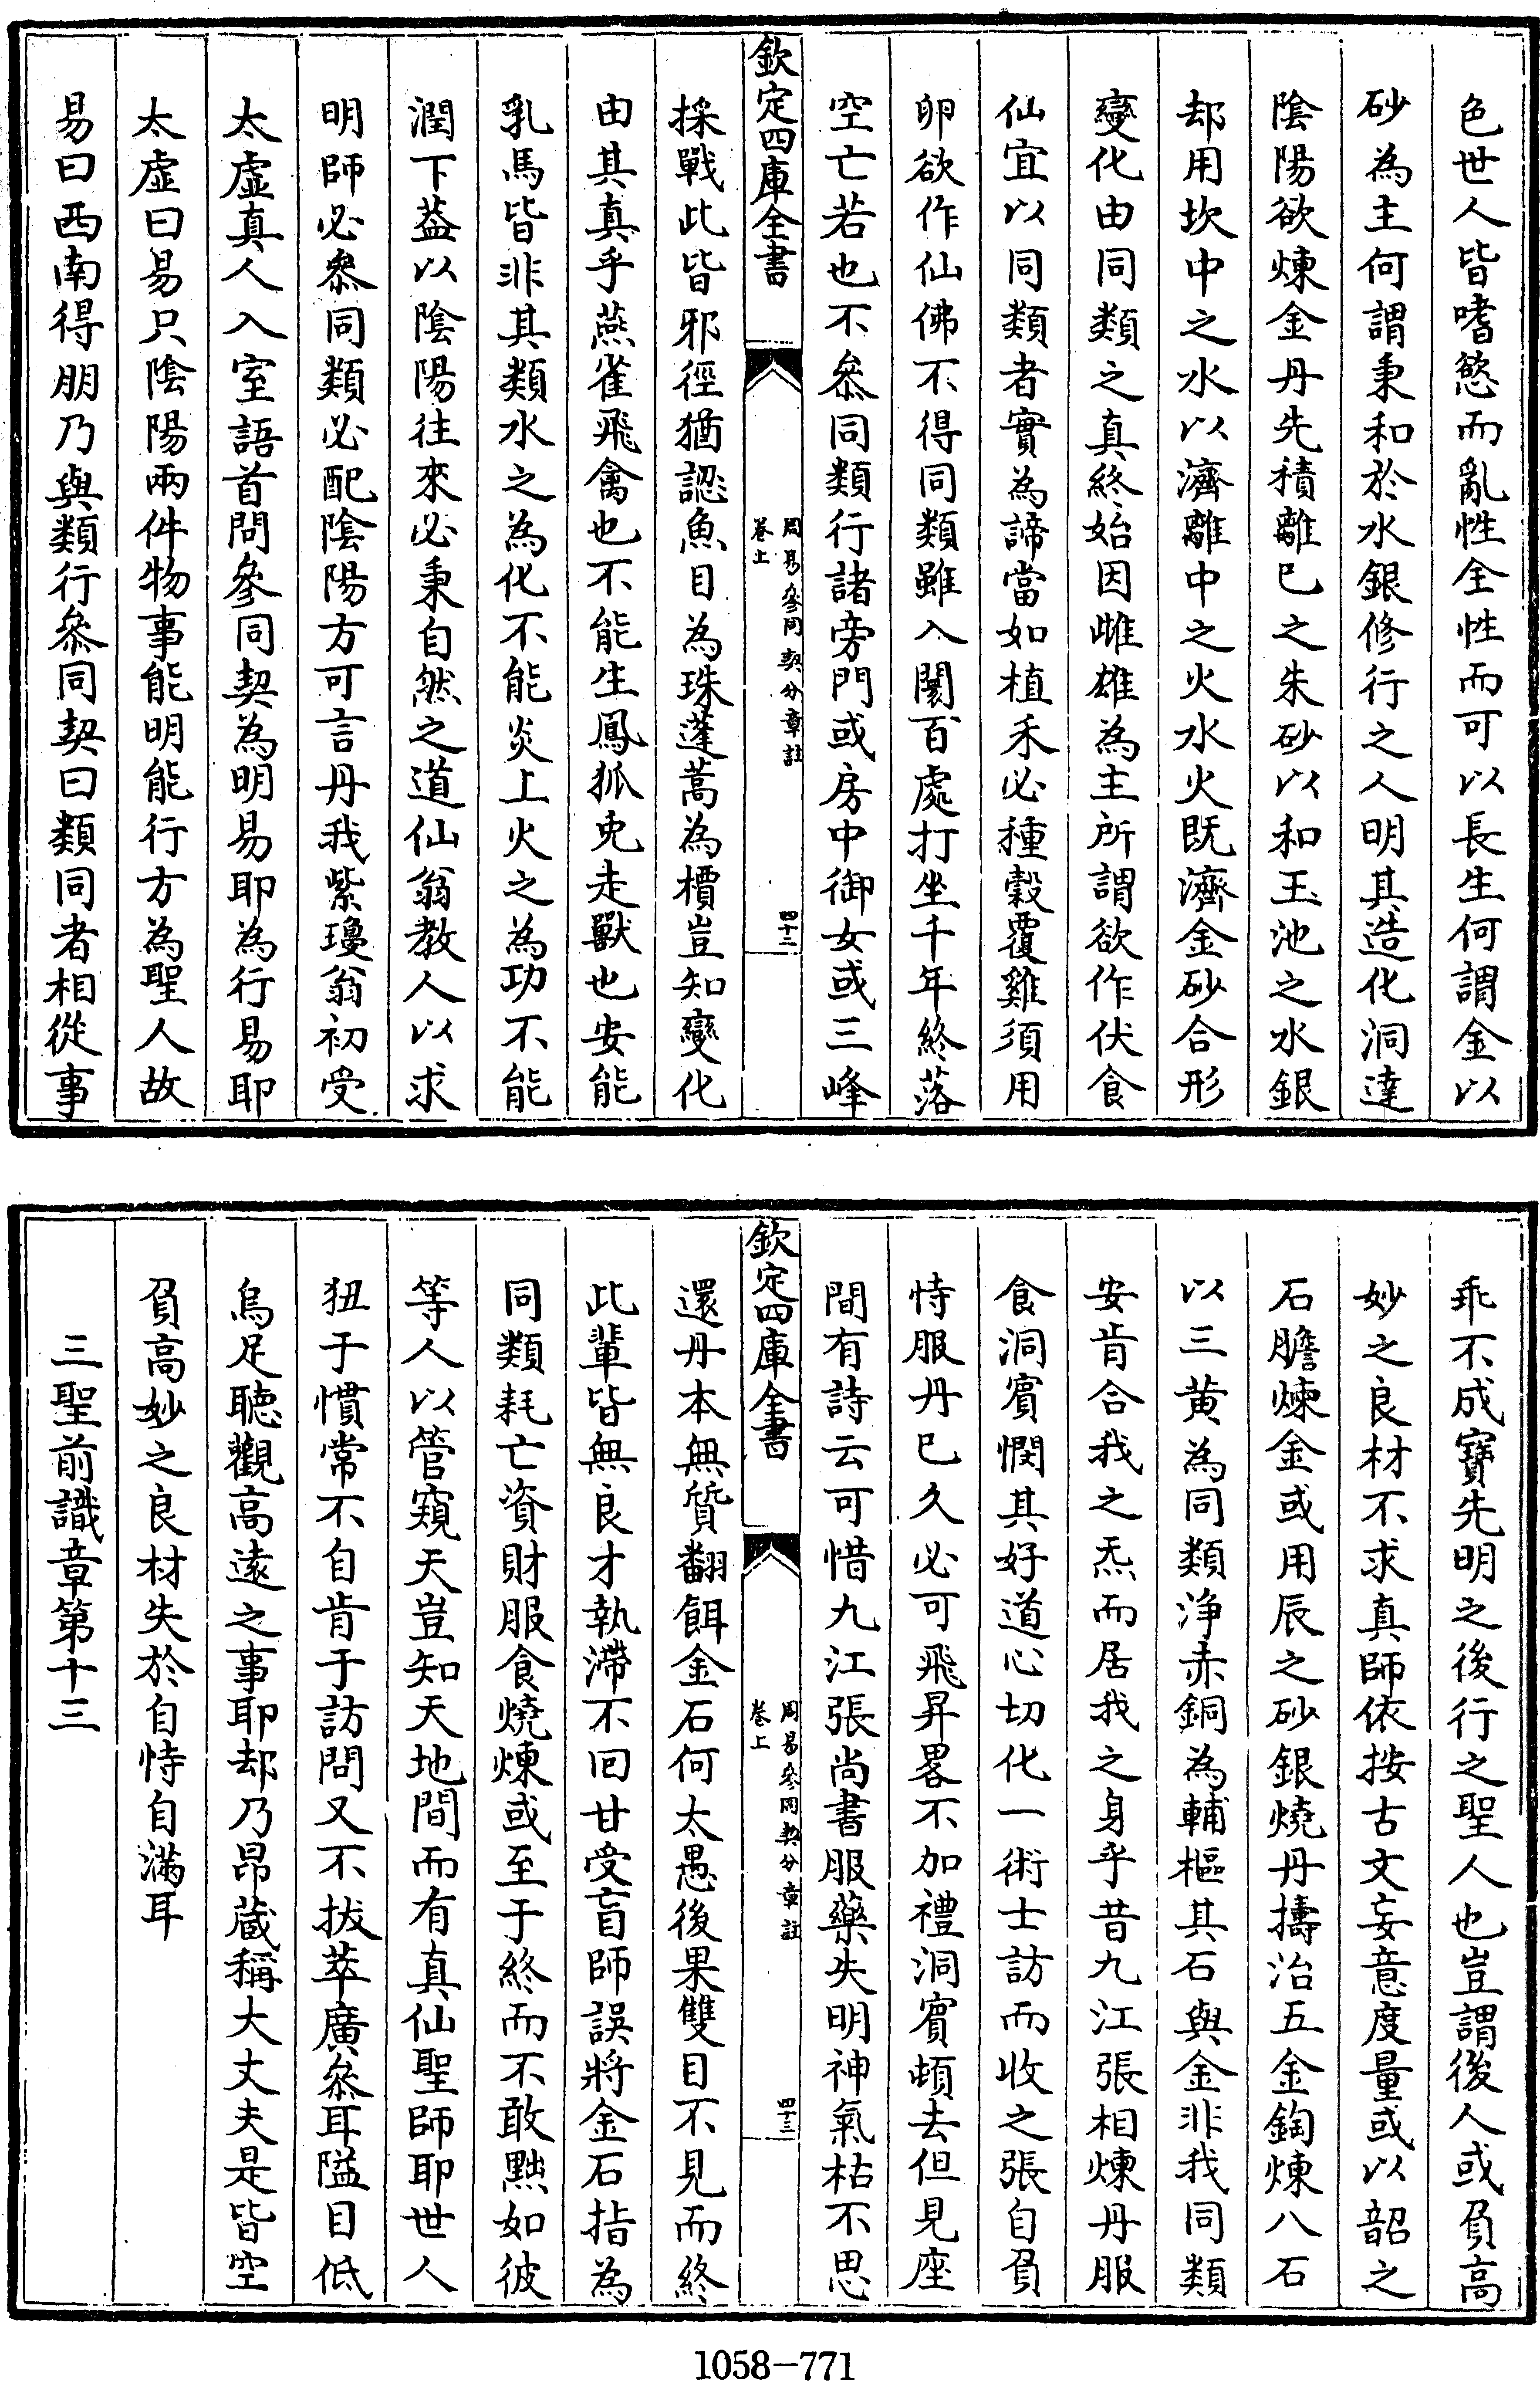 色世人皆嗜慾而亂性全性而可以長生何謂金以
砂為主何謂秉和於水銀修行之人明其造化洞達
陰陽欲煉金丹先積離巳之朱砂以和玉池之水銀
却用坎中之水以濟離中之火水火既濟金砂合形
變化由同類之真終始因雌雄為主所謂欲作伏食
仙宜以同類者實為諦當如植禾必種穀覆雞須用
卵欲作仙佛不得同類雖入闤百處打坐千年終落
空亡若也不叅同類行諸旁門或房中御女或三峰
欽定四庫全書
周易參同契分章註
卷上
四十二
採戰此皆邪徑猶認魚目為珠蓬蒿為檟豈知變化
由其真乎燕雀飛禽也不能生鳳狐兎走獸也安能
乳馬皆非其類水之為化不能炎上火之為功不能
潤下葢以陰陽往來必秉自然之道仙翁教人以求
明師必叅同類必配陰陽方可言丹我紫瓊翁初受
太虛真人入室語首問參同契為明易耶為行易耶
太虛曰易只陰陽兩件物事能明能行方為聖人故
易曰西南得朋乃與類行叅同契曰類同者相從事
乖不成寶先明之後行之聖人也豈謂後人或負高
妙之良材不求真師依按古文妄意度量或以韶之
石膽煉金或用辰之砂銀燒丹擣治五金鍧煉八石
以三黃為同類淨赤銅為輔樞其石與金非我同類
安肯合我之炁而居我之身乎昔九江張相煉丹服
食洞賓憫其好道心切化一術士訪而收之張自負
恃服丹巳久必可飛昇畧不加禮洞賓頓去但見座
間有詩云可惜九江張尚書服藥失明神氣枯不思
欽定四庫全書
周易參同契分章註
卷上
四十三
還丹本無質翻餌金石何太愚後果雙目不見而終
此輩皆無良才執滯不回甘受盲師誤將金石指為
同類耗亡資財服食燒煉或至于終而不敢黜如彼
等人以管窺天豈知天地間而有真仙聖師耶世人
狃于慣常不自肯于訪問又不拔萃廣叅耳隘目低
烏足聽觀高遠之事耶却乃昂藏稱大丈夫是皆空
負高妙之良材失於自恃自滿耳
三聖前識章第十三
1058-771